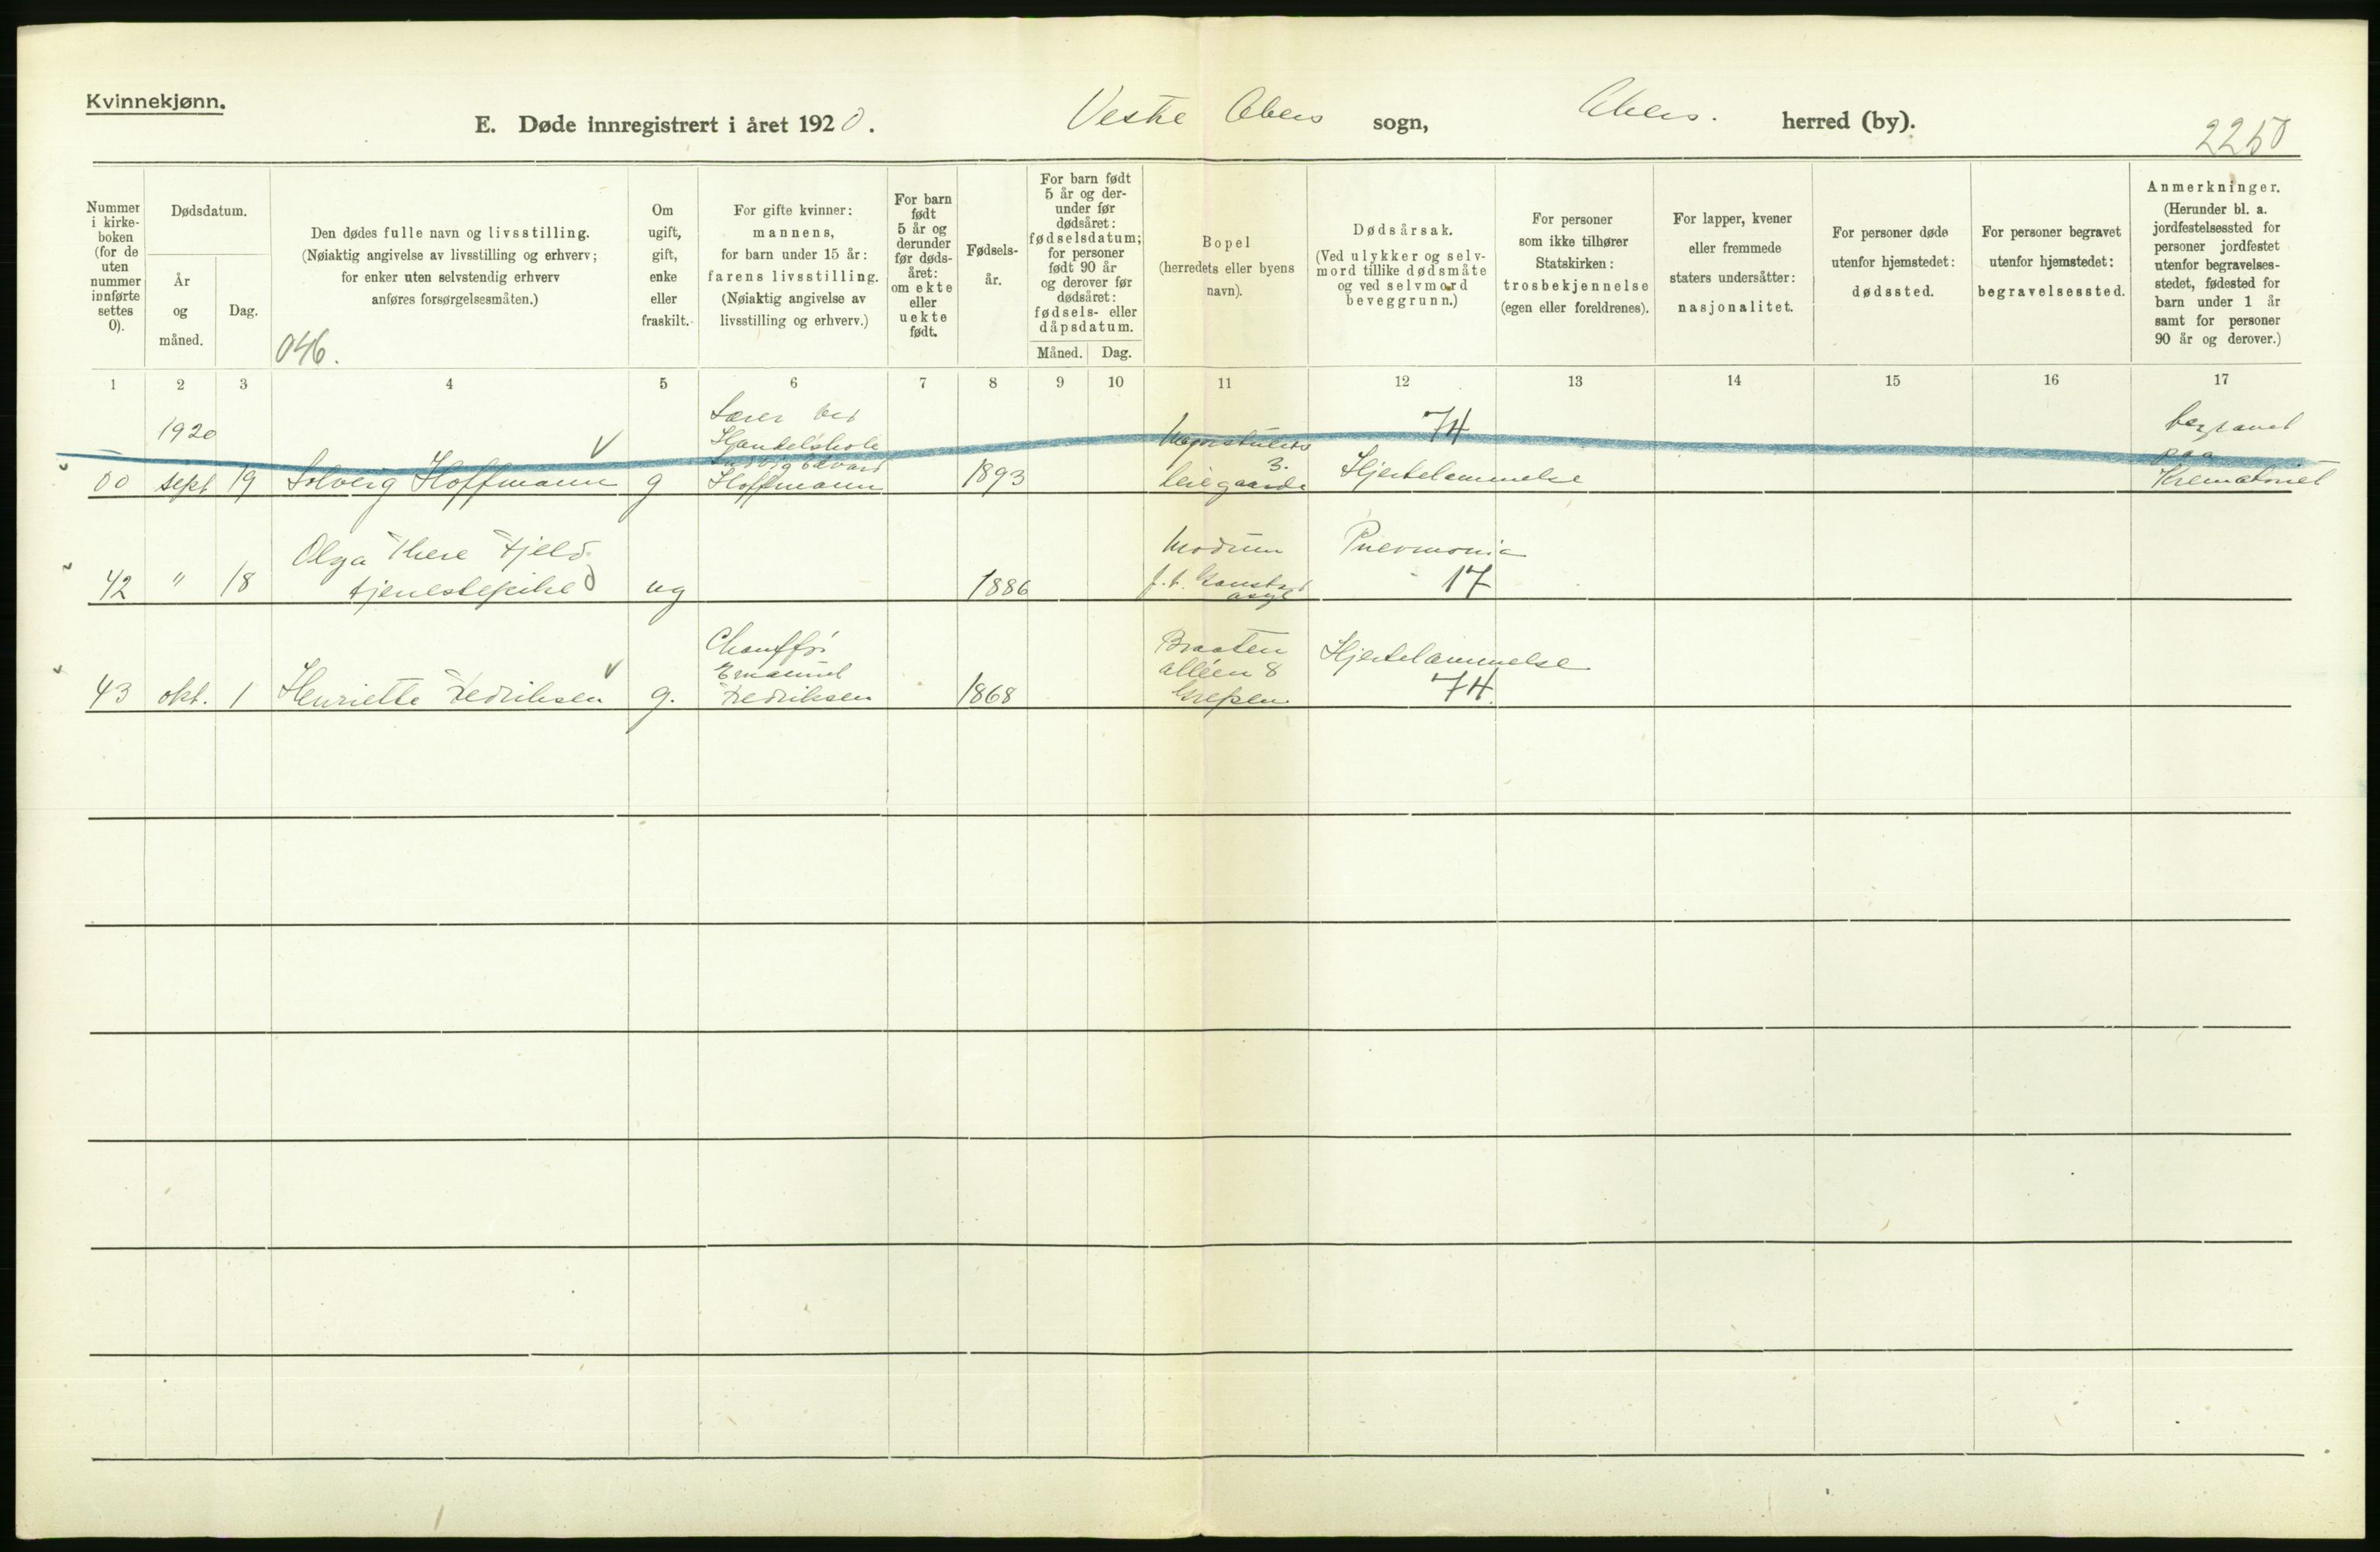 Kvinnekjønn.
E. Døde innregistrert i året 1920. Vestre Akers sogn, Akers. herred (by).
2250
Nummer i kirke- boken (for de uten nummer innførte settes 0).
Dødsdatum.
År og måned.
Dag.
Den dødes fulle navn og livsstilling.
(Nøiaktig angivelse av livsstilling og erhverv;
for enker uten selvstendig erhverv
anføres forsørgelsesmåten.)
046.
Om ugift, gift, enke eller fraskilt.
For gifte kvinner:
mannens,
for barn under 15 år:
farens livsstilling.
(Nøiaktig angivelse av
livsstilling og erhverv.)
For barn født 5 år og derunder før døds- året: om ekte eller uekte født.
Fødsels- år.
For barn født 5 år og der- under før dødsåret: fødselsdatum; for personer født 90 år og derover før dødsåret: fødsels- eller dåpsdatum.
Måned. Dag.
Bopel
(herredets eller byens
navn).
Dødsårsak.
(Ved ulykker og selv-
mord tillike dødsmåte
og ved selvmord
beveggrunn.)
For personer
som ikke tilhører
Statskirken:
trosbekjennelse
(egen eller foreldrenes).
For lapper, kvener
eller fremmede
staters undersåtter:
nasjonalitet.
For personer døde
utenfor hjemstedet:
dødssted.
For personer begravet
utenfor hjemstedet:
begravelsessted.
Anmerkninger.
(Herunder bl. a.
jordfestelsessted for
personer jordfestet
utenfor begravelses-
stedet, fødested for
barn under 1 år
samt for personer
90 år og derover.)
1 2 3 4 5 6 7 8 9 10 11 12 13 14 15 16 17
1920
00 sept 19 Solveig Hoffmann g
Lærer ved
Handelskole
Ludvig Edvard
Hoffmann
1893
3.
Hjertelammelse
74
begravet
paa
Krematoriet
42 " 18
Olga There Fjeld
tjenestepike
ug
1886
Modum
f. t. Gaustad
asyl
Pneumonia
17
43 okt. 1 Henriette Fedriksen g.
Chauffør
Emanuel
Fedriksen
1868
Braaten
alléen 8
Grefsen
Hjertelammelse
74.